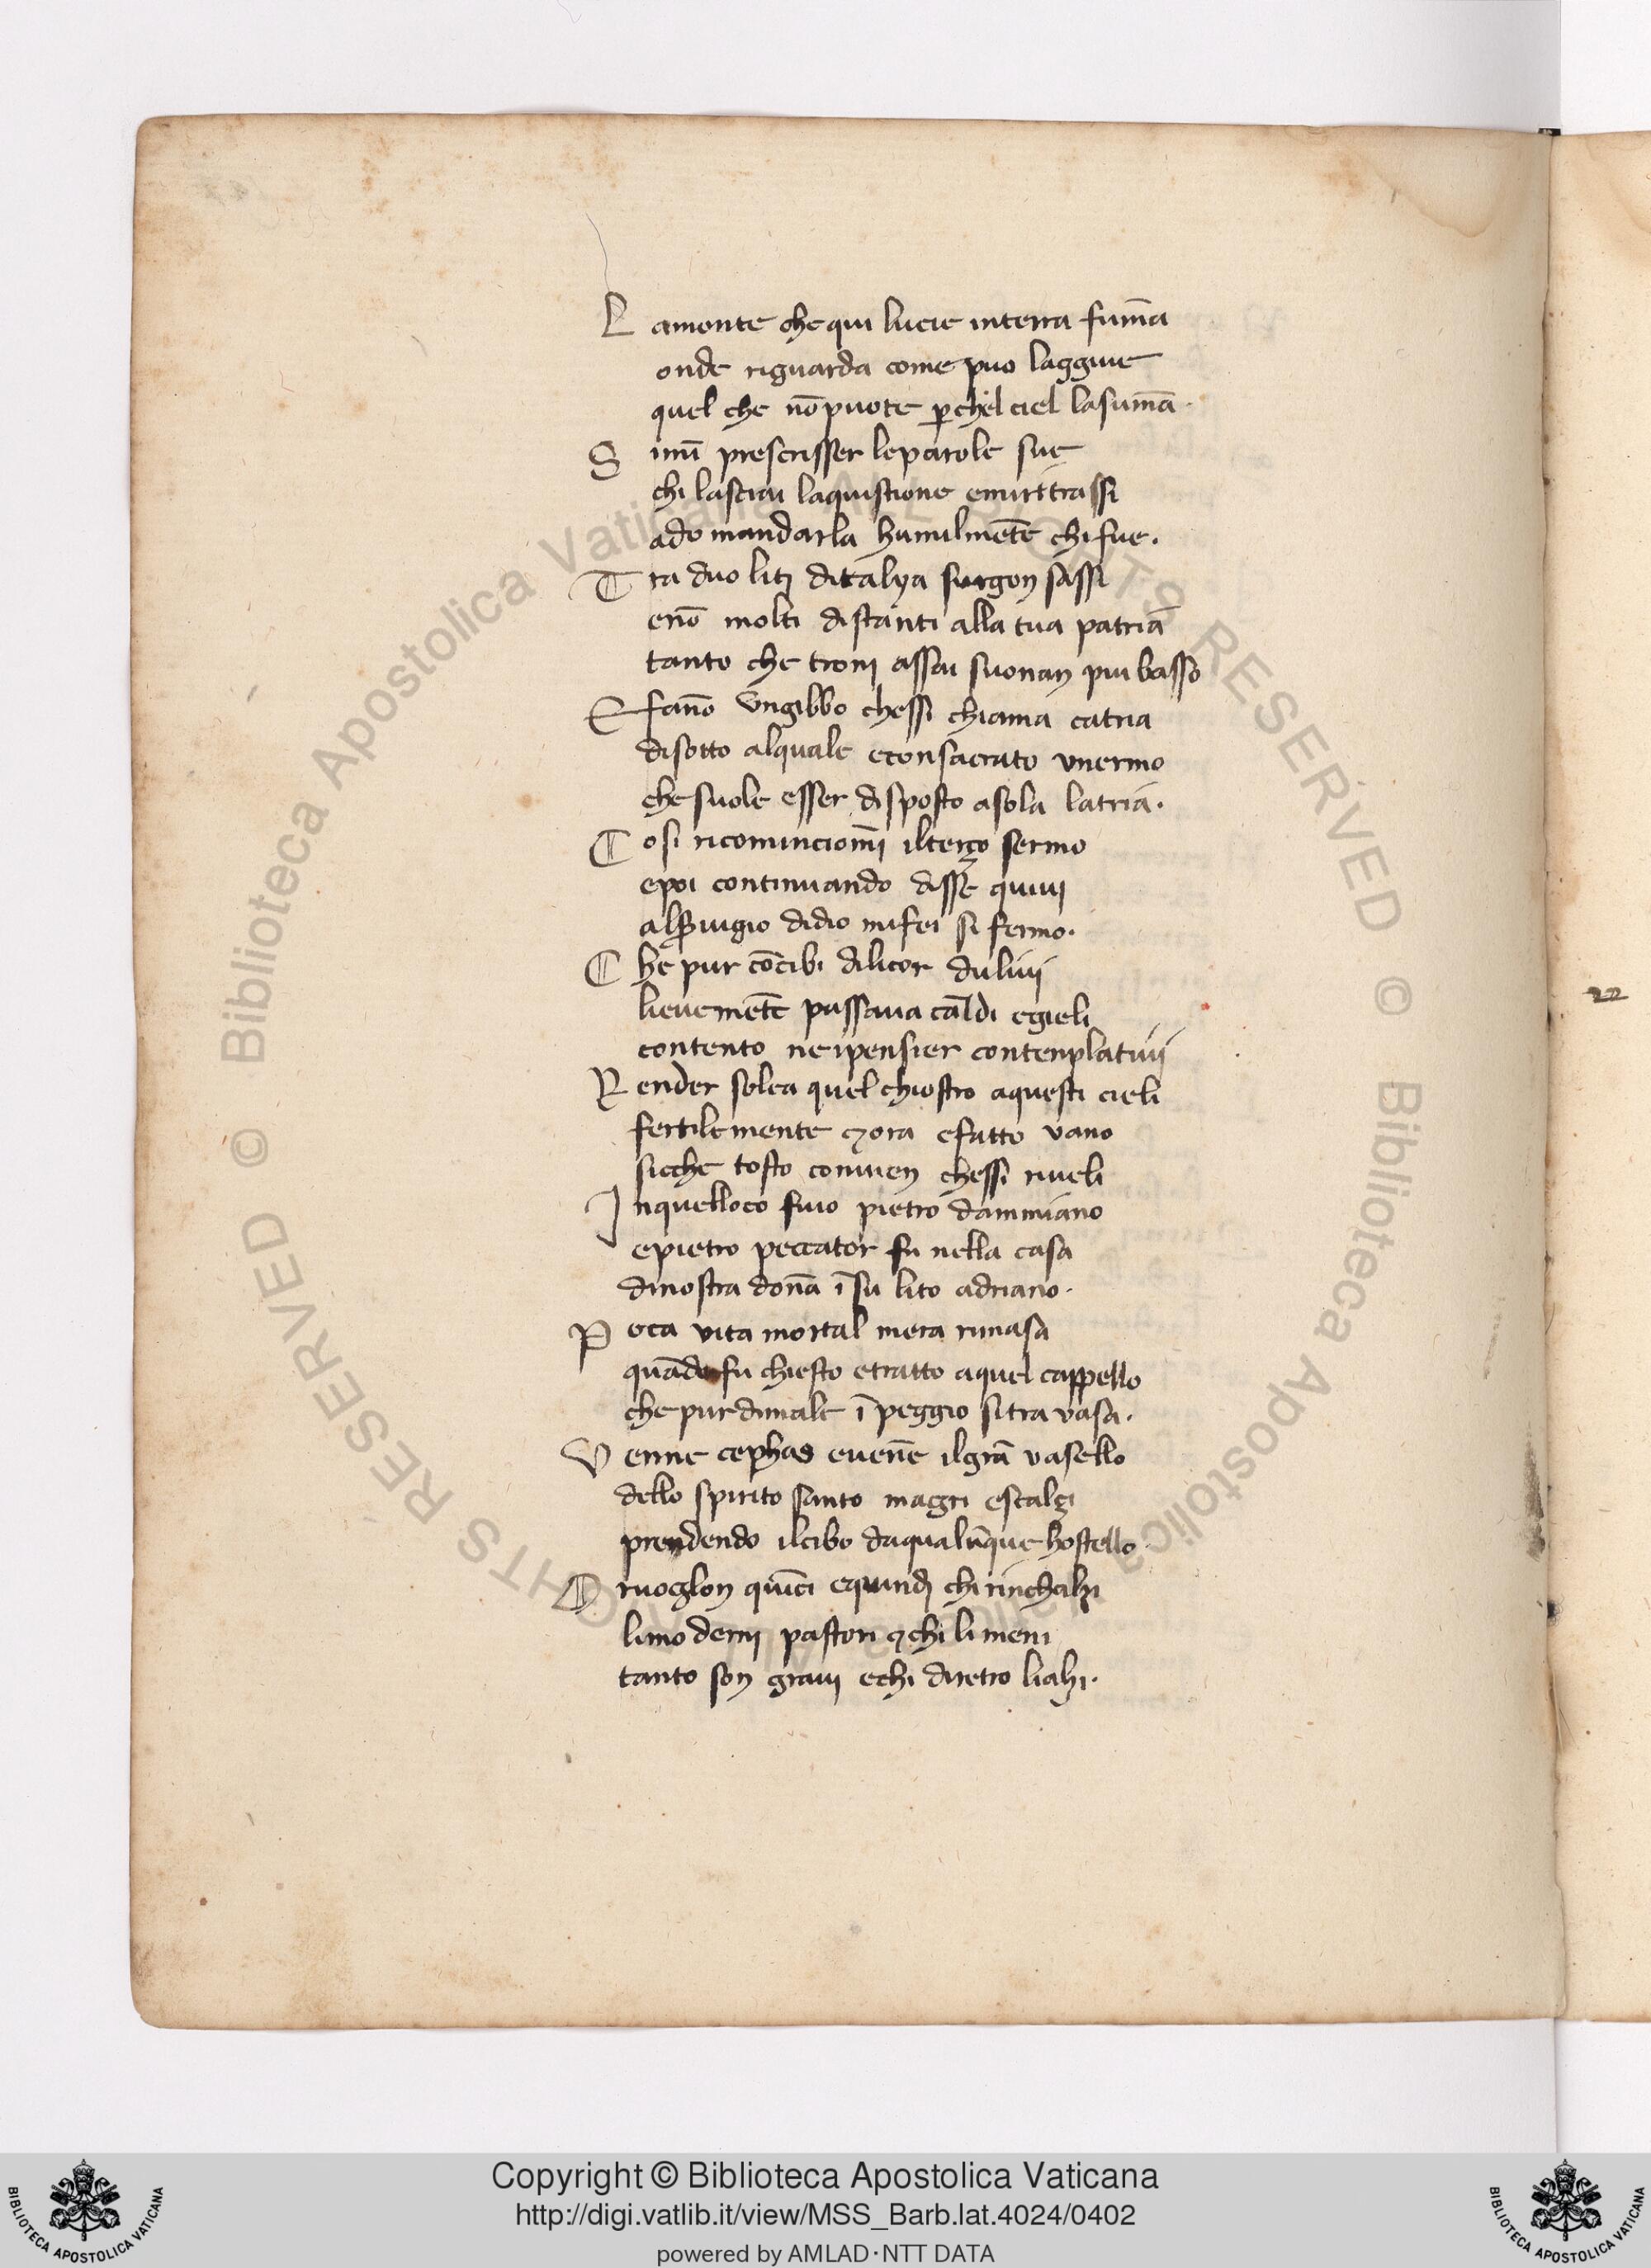 L amente che qui lucie interra fum̄a
onde riguarda come puo laggiue
quel che nō puote ꝑchel ciel lasum̄a.
S imī prescrisser leparole sue
chi lasciai laquistione emirittrassi
adomandarla humilmēte chi fue.
T ra duo liti ditalya surgon sassi
enō molti distanti alla tua patria
tanto che troni assai suonan piu basso
E fanō ungibbo chessi chiama catria
disotto alquale econsacrato unermo
che suole esser disposto asola latria.
C osi ricominciom̄i ilterço sermo
epoi continuando disse quivi
alꝑuigio didio mifei si fermo.
C he pur cōcibi dilicor dulivi
lievemēte passava caldi egieli
contento neipensier contenplativi
R ender solea quel chiostro aquesti cieli
fertilemente ⁊ora efatto vano
sicche tosto convien chessi riveli
I nquelloco fuio pietro dammiano
epietro peccator fu nella casa
dinostra donā ī su lito adriano.
P oca vita mortal mera rimasa
quādo fu chiesto etratto aquel cappello
che pur dimale ī peggio sitravasa.
V enne cephas evenē ilgrā vasello
dello spirito santo magri escalçi
prendendo ilcibo daqualūque hostello.
O rvoglon quīci equindi chi rinchalzi
limoderni pastori ⁊chi limeni
tanto son gravi echi diretro lialzi.
22
© Biblioteca Apostolica Vaticana ALL RIGHTS RESERVED © Biblioteca Apostolica Vaticana ALL RIGHTS RESERVED
Copyright © Biblioteca Apostolica Vaticana
http://digi.vatlib.it/view/MSS_Barb.lat.4024/0402
powered by AMLAD·NTT DATA
BIBLIOTECA APOSTOLICA VATICANA
BIBLIOTECA APOSTOLICA VATICANA